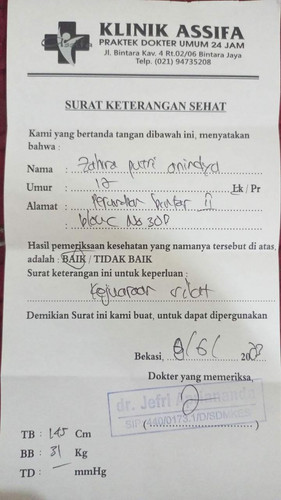 KLINIK ASSIFA
PRAKTEK DOKTER UMUM 24 JAM
Jl. Bintara Kav. 4 Rt.02/06 Bintara Jaya
Telp. (021) 94735208
SURAT KETERANGAN SEHAT
Kami yang bertanda tangan dibawah ini, menyatakan
bahwa :
Nama : Zahra putri anindya
Umur : 12 Lk / Pr
Alamat : Perumahan bintara II
blouc No 30D
Hasil pemeriksaan kesehatan yang namanya tersebut di atas,
adalah : BAIK / TIDAK BAIK
Surat keterangan ini untuk keperluan :
Kejuaraan silat
Demikian Surat ini kami buat, untuk dapat dipergunakan
Bekasi, /6/ 20
Dokter yang memeriksa,
dr. Jefri
SIP
TB : 145 Cm
BB : 31 Kg
TD : — mmHg